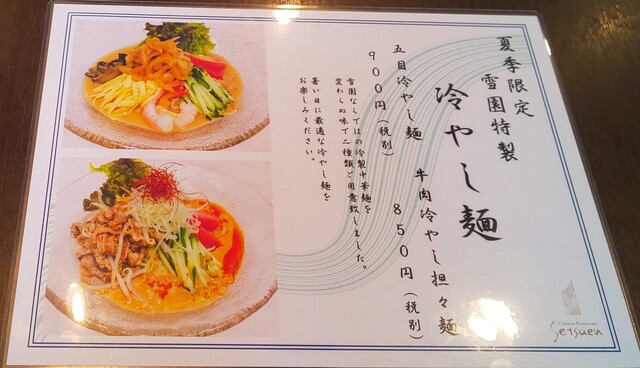 夏季限定
雪園特製
冷やし麺
牛肉冷やし担々麺
850円(税別)
五目冷やし麺
900円(税別)
雪園ならではの冷製中華麺を
変わらぬ味で二種類ご用意致しました。
暑い日に最適な冷やし麺を
お楽しみください。
Chinese Restaurant
Setsuen